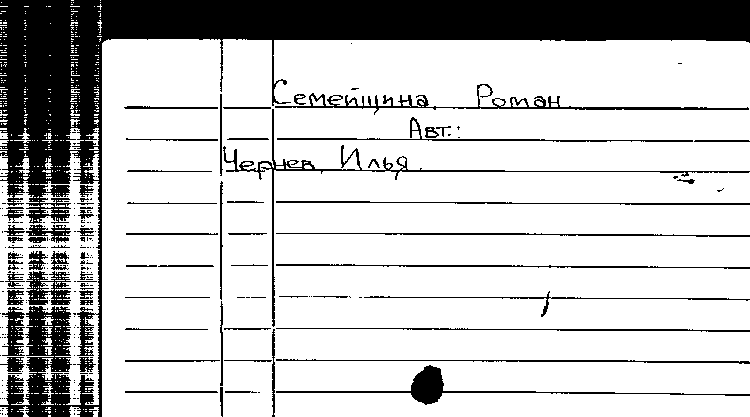 Семейщина. Роман
Авт.:
Чернев, Илья.